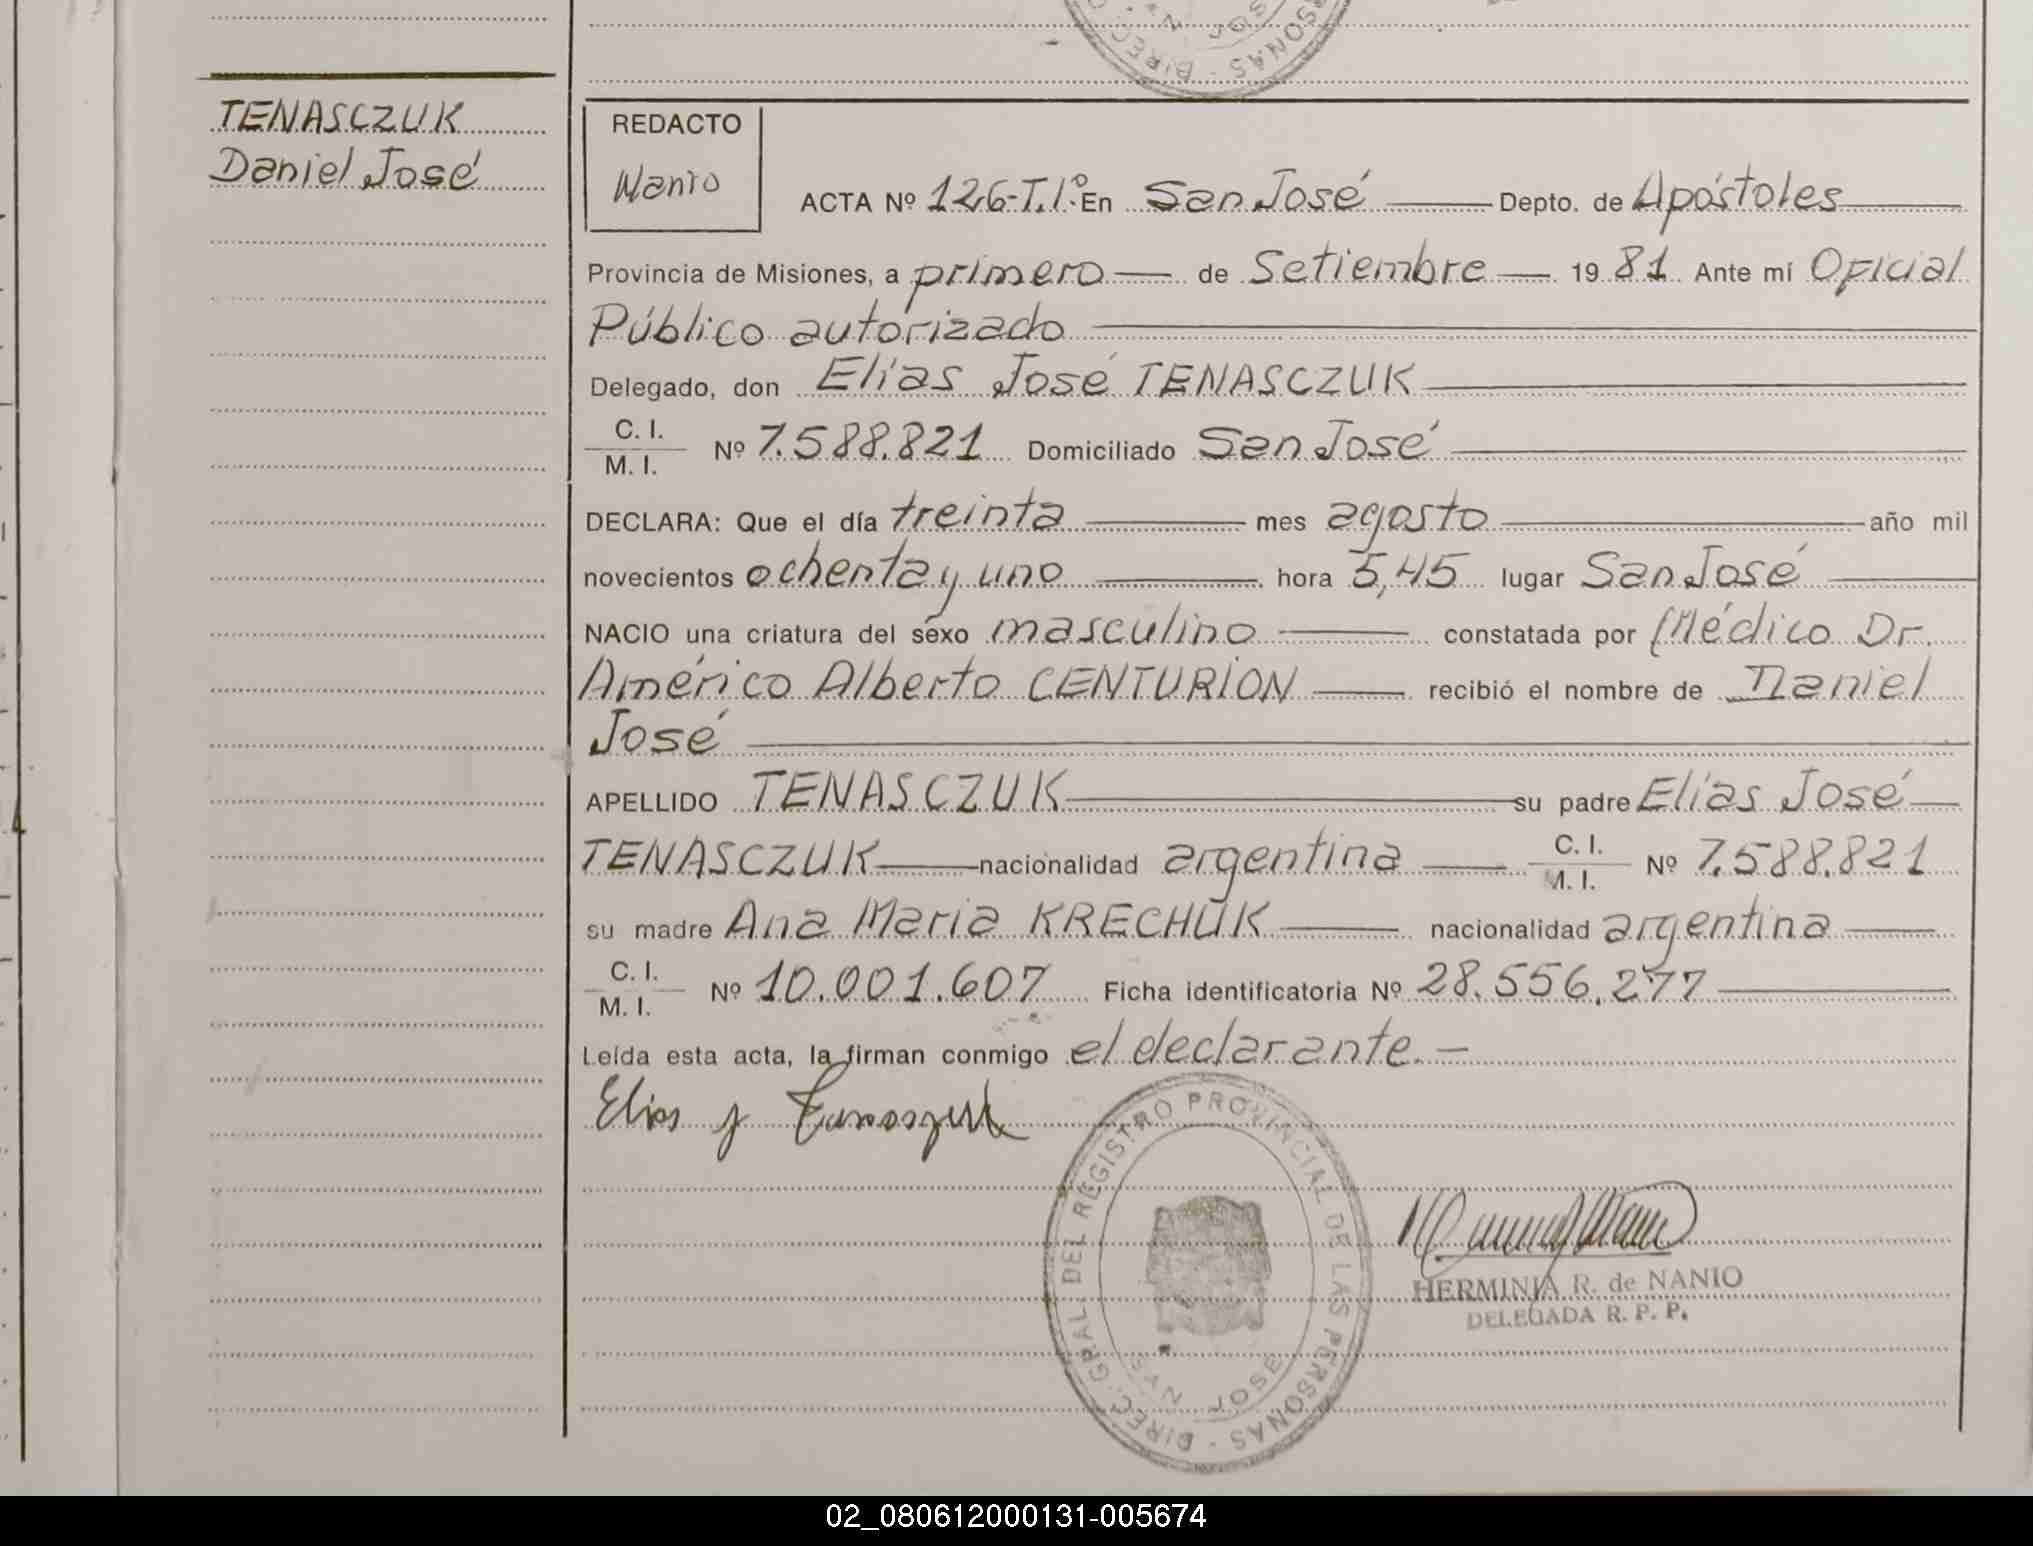 TENASCZUK
Daniel José
REDACTO
Nanio
ACTA Nº 126-T.1º En San José Depto. de Apóstoles
Provincia de Misiones, a primero de Setiembre 19 81 Ante mí Oficial
Público autorizado
Delegado, don Elías José TENASCZUK
C. I.
M. I. Nº 7.588.821 Domiciliado San José
DECLARA: Que el día treinta mes agosto año mil
novecientos ochenta y uno hora 5,45 lugar San José
NACIO una criatura del sexo masculino constatada por Médico Dr.
Américo Alberto CENTURION recibió el nombre de Daniel
José
APELLIDO TENASCZUK su padre Elías José
TENASCZUK nacionalidad argentina C. I.
M. I. Nº 7.588.821
su madre Ana Maria KRECHUK nacionalidad argentina
C. I.
M. I. Nº 10.001.607 Ficha identificatoria Nº 28.556.277
Leída esta acta, la firman conmigo el declarante.-
Elias J
DIREC. GRAL. DEL REGISTRO PROVINCIAL DE LAS PERSONAS
SAN JOSE
HERMINIA R. de NANIO
DELEGADA R. P. P.
02_080612000131-005674